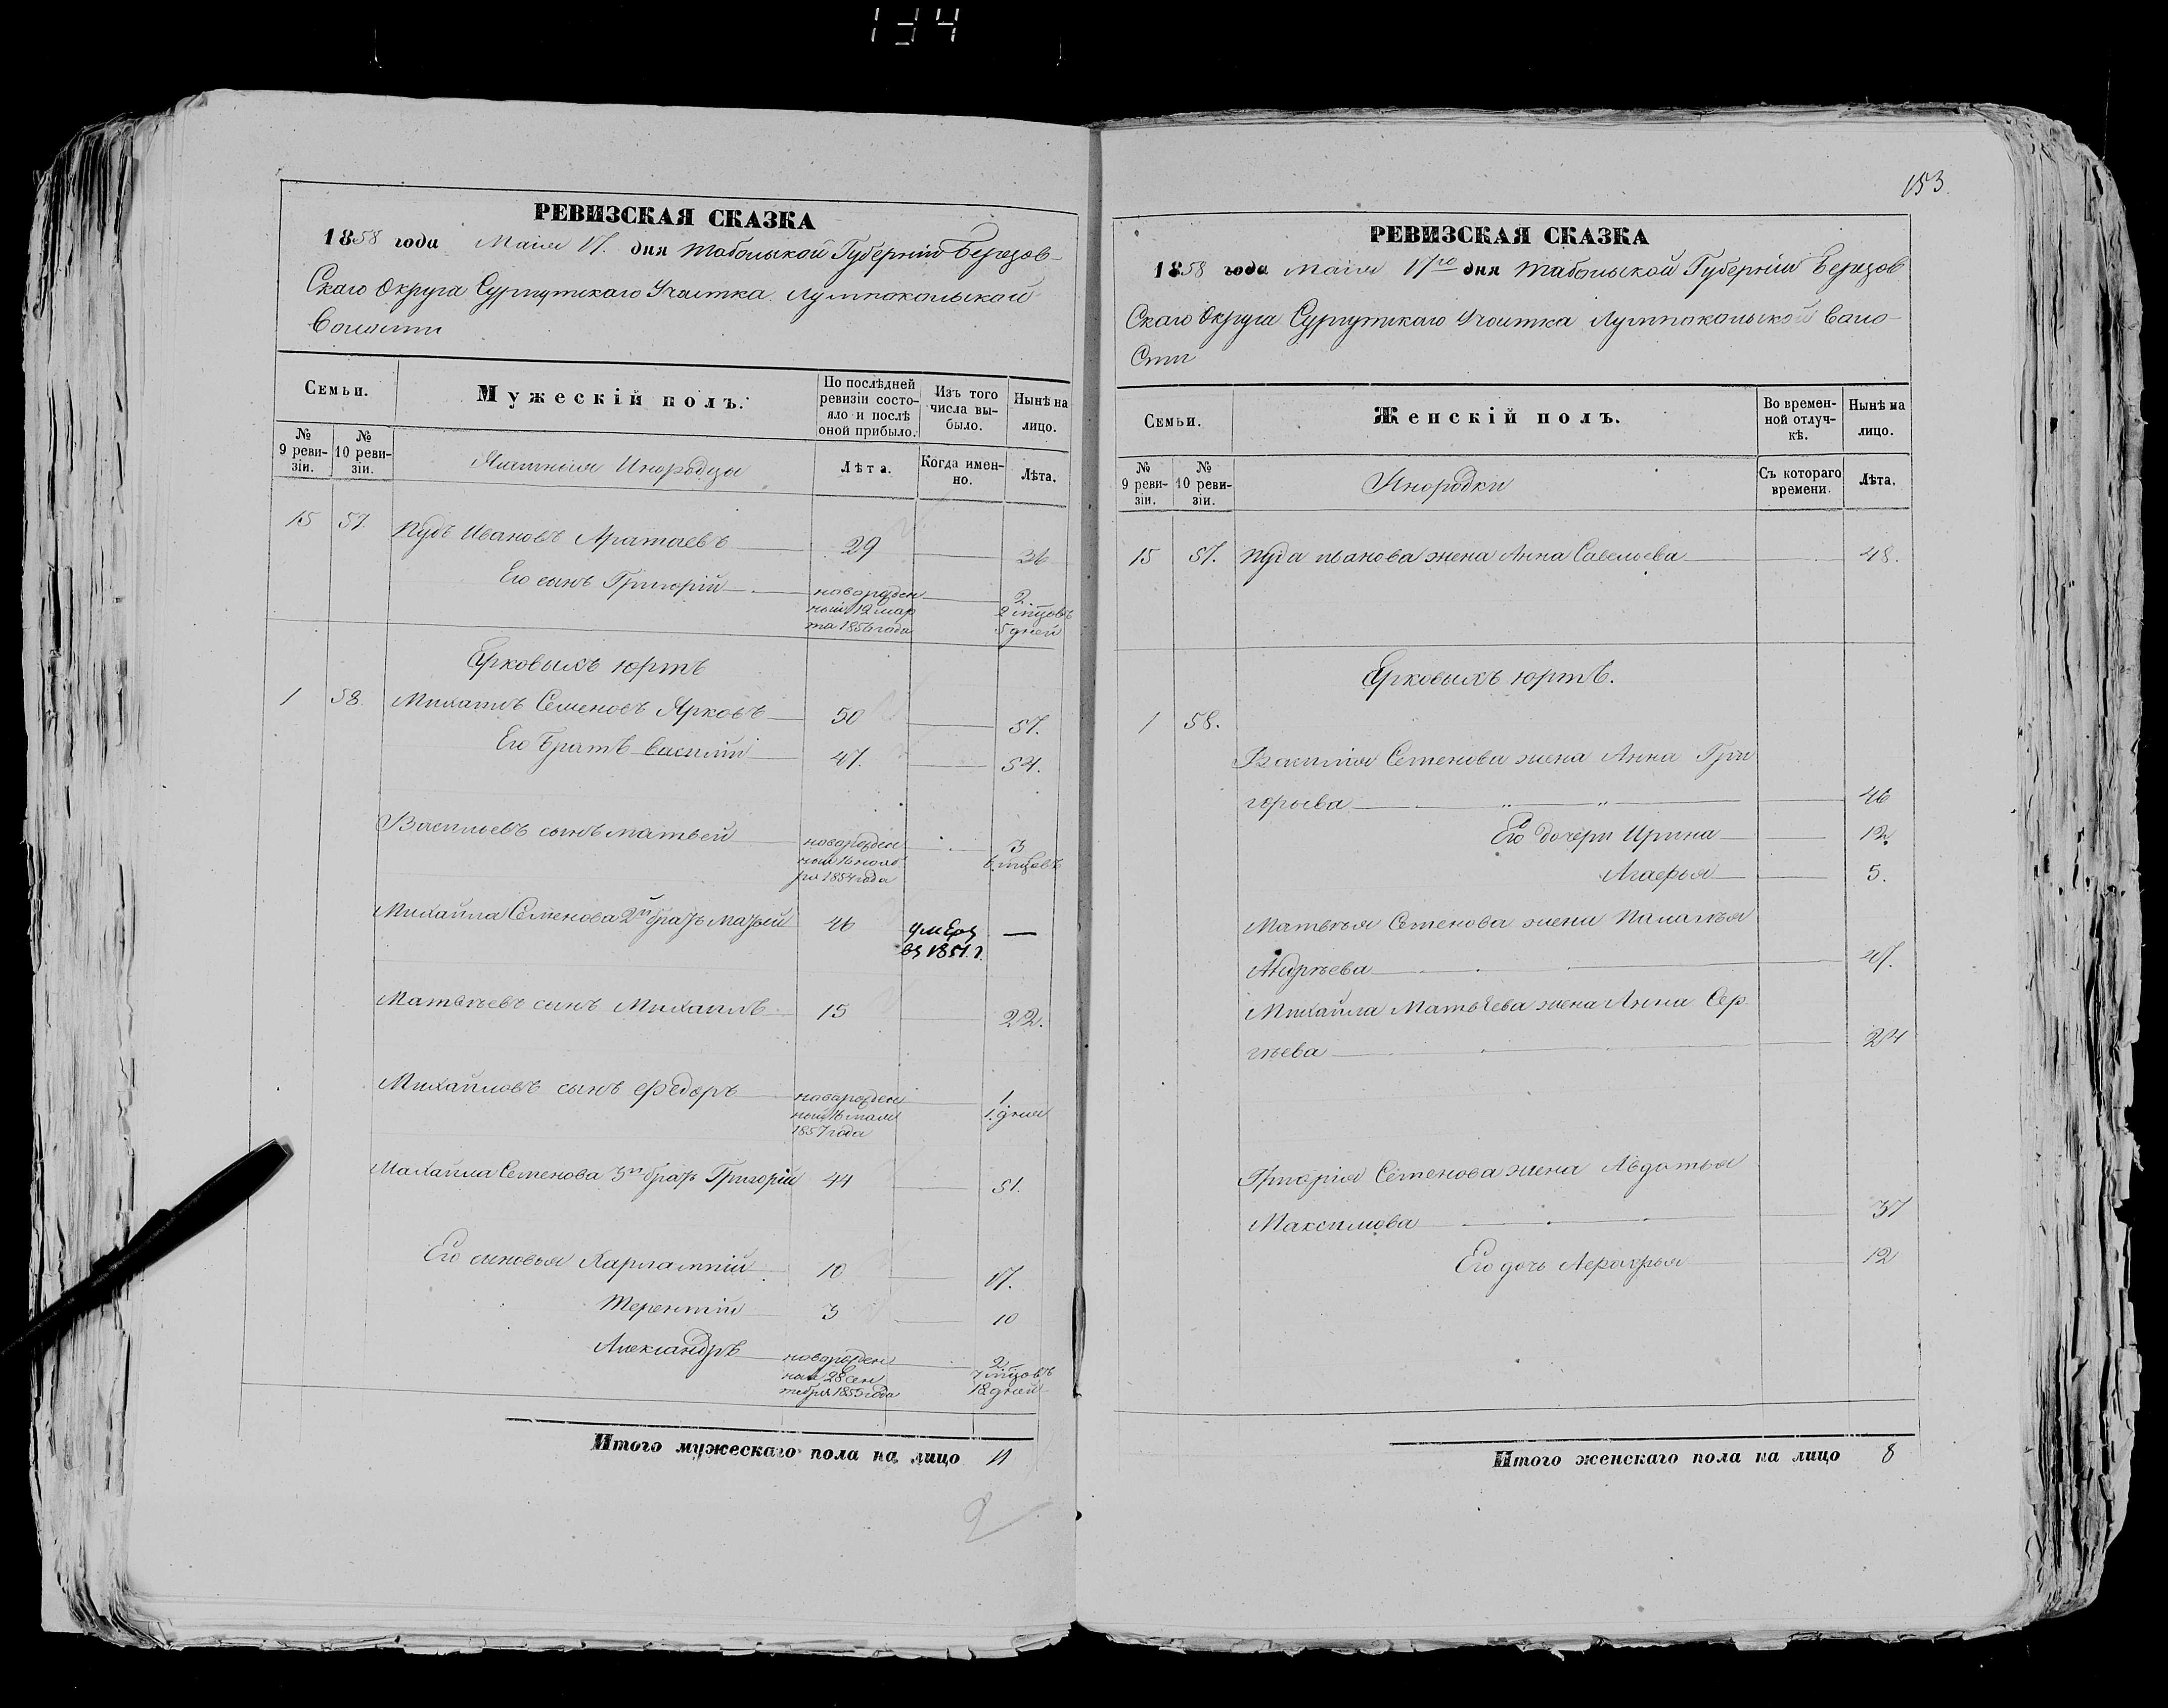 134
РЕВИЗСКАЯ СКАЗКА
1858 года Маія 17. дня Тобольской Губерніи Березов-
скаго Округа Сургутскаго Участка Лумпокольской
Волости
Семьи.
Мужескій полъ.
По послѣдней ревизіи состояло и послѣ оной прибыло.
Изъ того числа выбыло.
Нынѣ на лицо.
№ 9 ревизіи.
№ 10 ревизіи.
Инородцы
Лѣта.
Когда именно.
Лѣта.
15 57. Пудъ Ивановъ 29 36
Его сынъ Григорій новорожден 2
ный 12 мар 2 мѣсцовъ
та 1856 года 5 дней
Ярковыхъ юртъ
1 58. Михаилъ Семеновъ Ярковъ 50 57.
Его братъ Василій 47. 54.
Васильевъ сынъ Матвей новорожден 3
ный 16 нояб 6 мѣсцовъ
ря 1854 года
Михайла Семенова 2й братъ Матвей 46 умеръ —
въ 1851 г.
Матвѣевъ сынъ Михаилъ 15 22.
Михайловъ сынъ Федоръ новорожден 1
ный 16 маія 1. дня
1857 года
Михайла Семенова 3й братъ Григорій 44 51.
Его сыновья Харлампій 10 17.
Терентій 3 10
Александръ новорожден 2
ный 28 Сен 7 мѣсцовъ
тября 1855 года 18 дней
Итого мужескаго пола на лицо 11
2
153.
РЕВИЗСКАЯ СКАЗКА
1858 года Маія 17го дня Тобольской Губерніи Березов
скаго Округа Сургутскаго Участка Лумпокольской Воло-
сти
Семьи.
Женскій полъ.
Во временной отлучкѣ.
Нынѣ на лицо.
№ 9 ревизіи.
№ 10 ревизіи.
Инородки
Съ котораго времени.
Лѣта.
15 57. Пуда Иванова жена Анна Савельева 48.
Ярковыхъ юртъ.
1 58.
Василія Семенова жена Анна Гри
горьева 46
Его дочери Ирина 12.
Агафья 5.
Матвѣя Семенова жена Палагѣя
Андрѣева 47.
Михайла Матвѣева жена Анна Сер
гѣева 24
Григорія Семенова жена Авдотья
Максимова 37
Его дочь 12
Итого женскаго пола на лицо 8